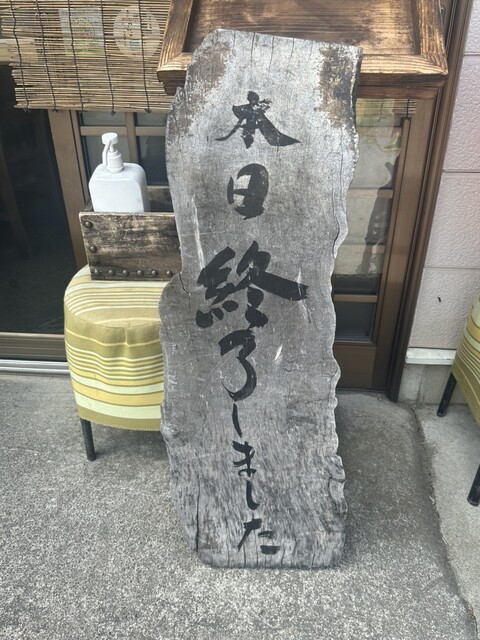 本日終了しました